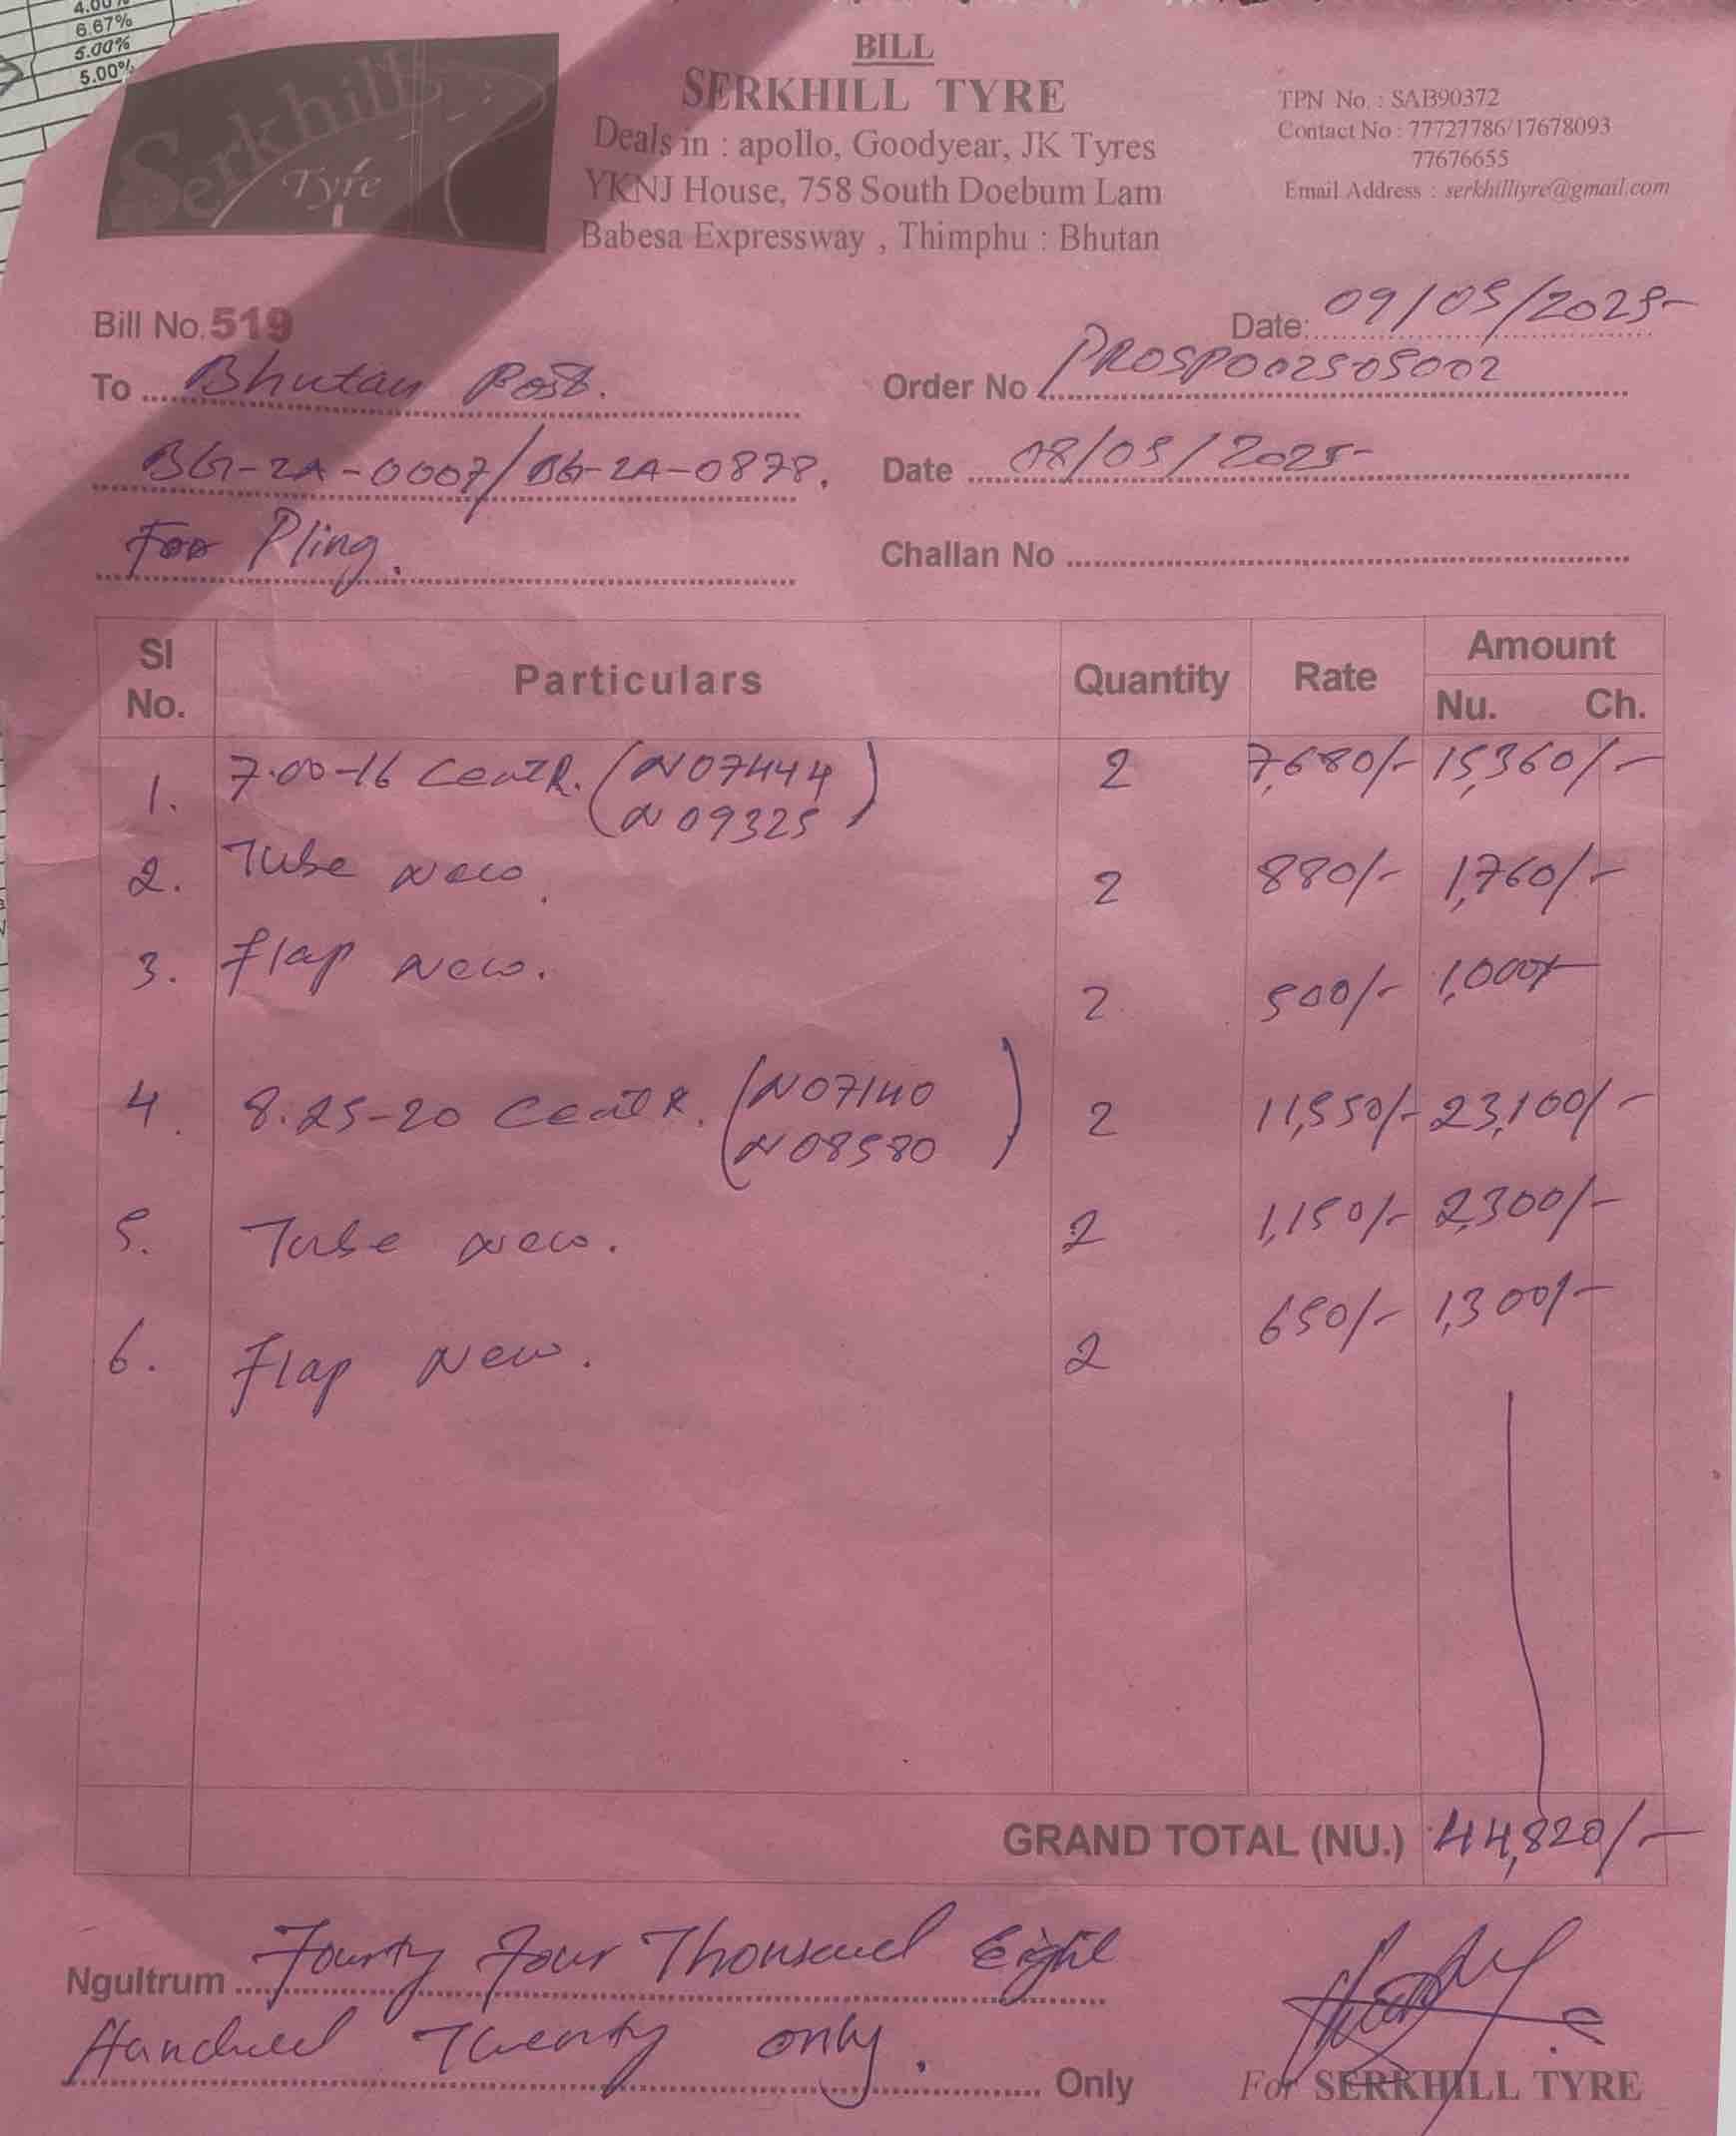 4.00%
6.67%
5.00%
5.00%
Serkhill
Tyre
BILL
SERKHILL TYRE
Deals in : apollo, Goodyear, JK Tyres
YKNJ House, 758 South Doebum Lam
Babesa Expressway , Thimphu : Bhutan
TPN No. : SAB90372
Contact No : 77727786/17678093
77676655
Email Address : serkhilltyre@gmail.com
Bill No. 519
Date: 09/05/2025
To Bhutan Post.
Order No PROSPO02505002
BG-2A-0007/BG-2A-0878.
Date 08/05/2025
For Pling.
Challan No
Sl No. Particulars Quantity Rate Amount
Nu. Ch.
1. 7.00-16 (N07444 2 7,680/- 15,360/-
N09325)
2. Tube New. 2 880/- 1,760/-
3. Flap New. 2 500/- 1,000/-
4. 8.25-20 (N07140 2 11,550/- 23,100/-
N08580)
5. Tube New. 2 1,150/- 2,300/-
6. Flap New. 2 650/- 1,300/-
GRAND TOTAL (NU.) 44,820/-
Ngultrum Fourty Four Thousand Eight
Hundred Twenty only. Only
For SERKHILL TYRE